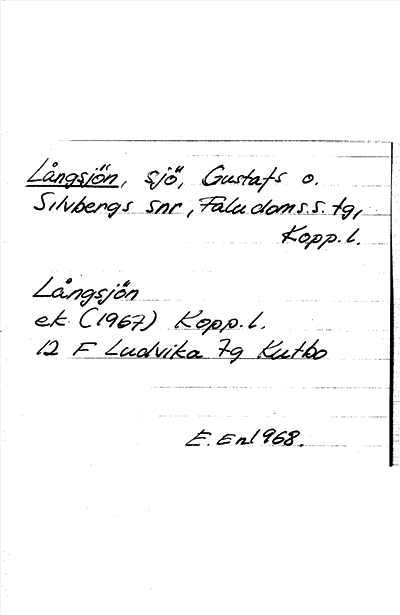 Långsjön, sjö, Gustafs o.
Silvbergs snr, Falu doms.s. tg,
Kopp. l.
Långsjön
ek (1967) Kopp. l.
12 F Ludvika 7g Kutbo
E. Enl 1968.